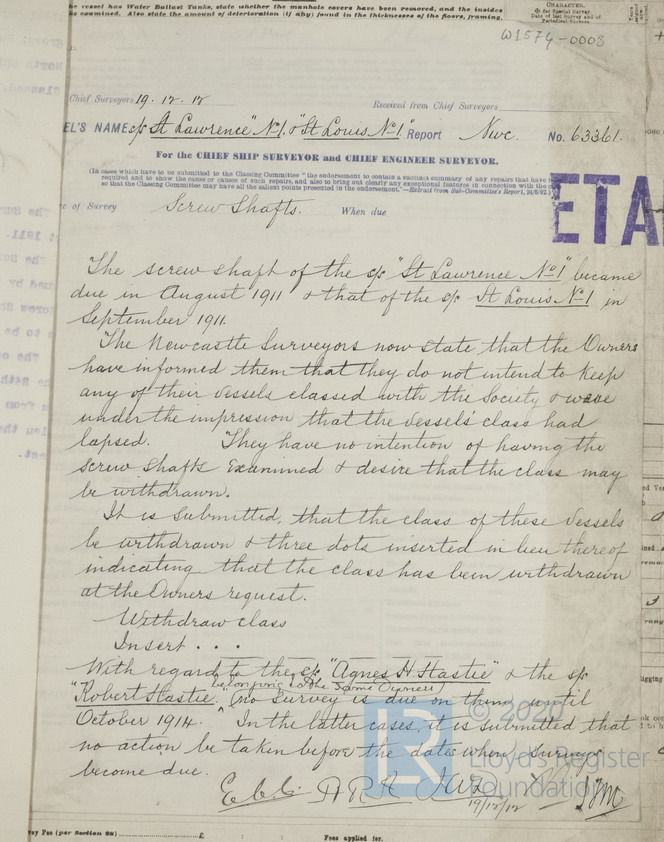 he vessel has Water Ballast Tanks, state whether the manhole covers have been removed, and the insides
examined. Also state the amount of deterioration (if any) found in the thicknesses of the floors, framing,
CHARACTER.
for Special Survey.
Date of last Survey and of
Periodical Surveys.
W1574-0003
Chief Surveyors 19.12.12
Received from Chief Surveyors
EL'S NAME s/s "St Lawrence" No 1. & "St Louis No 1." Report Nwc. No. 63361.
For the CHIEF SHIP SURVEYOR and CHIEF ENGINEER SURVEYOR.
(In cases which have to be submitted to the Classing Committee "the endorsement to contain a succinct summary of any repairs that have
required and to show the cause or causes of such repairs, and also to bring out clearly any exceptional features in connection with the
so that the Classing Committee may have all the salient points presented in the endorsement."—Extract from Sub-Committee's Report, 24/6/92.)
ETA
of Survey Screw Shafts. When due
The screw shaft of the s/s "St Lawrence No 1" became
due in August 1911 & that of the s/s St Louis No 1 in
September 1911.
The Newcastle Surveyors now state that the Owners
have informed them that they do not intend to keep
any of their vessels classed with the Society & were
under the impression that the vessels' class had
lapsed. They have no intention of having the
screw shafts examined & desire that the class may
be withdrawn.
It is submitted, that the class of these vessels
be withdrawn & three dots inserted in lieu thereof
indicating that the class has been withdrawn
at the Owners request.
Withdraw class
Insert . . .
With regard to the s/s "Agnes H. Hastie" & the s/s
belonging to the same Owners
"Robert Hastie" (no survey is due on them until
October 1914. In the latter cases, it is submitted that
no action be taken before the dates when surveys
become due.
19/12/12
© 202
Lloyd's Register
Foundation
Fee (per Section 28) £ : : Fees applied for.